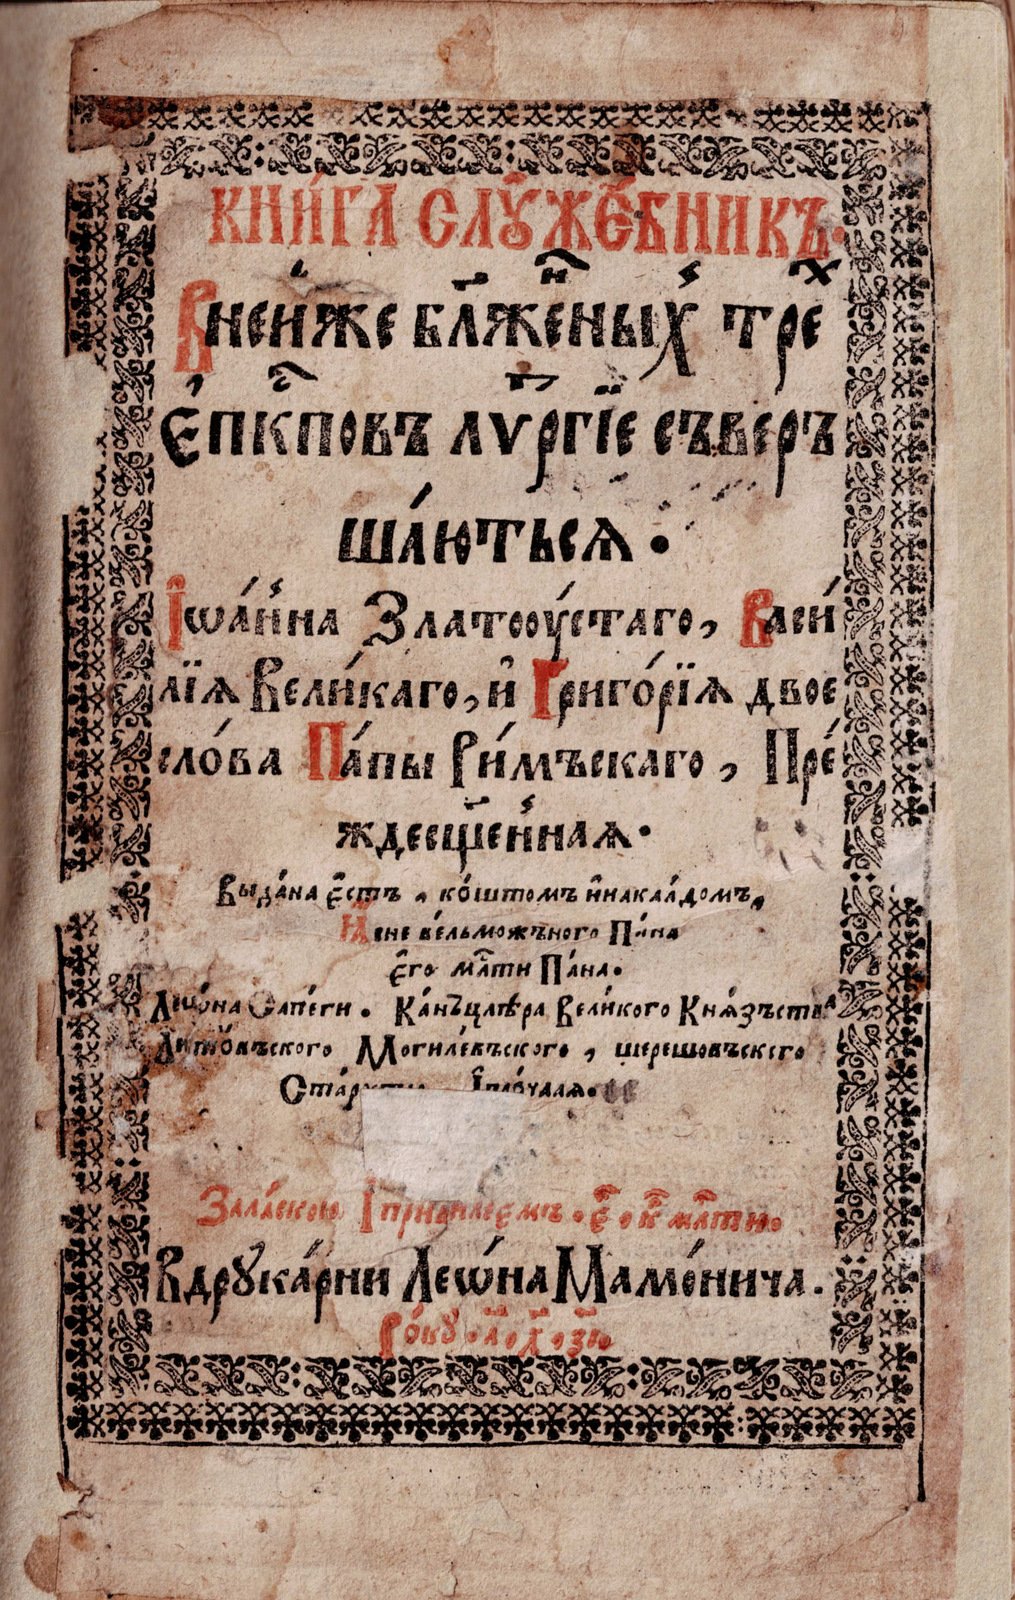 КНИ́ГА СЛꙊЖЕ́БНИКЪ.
Вне́йже бл҃же́ⷩныхъ треⷯ
Е҆пⷭ҇кповъ лѵⷮргі́е съверъ
ша́ютьсѧ.
Іѡа́нна Златоу́стаго, Васи́
лїѧ Вели́каго, и҆ Григо́рїѧ двое
сло́ва Па́пы Ри́мъскаго, Пре́
ждеос҃ще́ннаѧ.
Выда́на е҆стъ, ко́штомъ и҆накладомъ,
Ꙗсне ве́льможъного Па́на
Е҆го мл҃ти Па́на.
Леѡ́на Сапеги. Ка́нъцлѣра Вели́кого Кнѧ́зъства
Лито́въского Могиле́въского, шерешовъского
Залаского І привилеемъ. Е҃. К҃. мл҃ти.
Вдрꙋка́рни Леѡ́на Мамо́нича.
Ро́кꙋ. ҂а҃. х҃. з҃і.